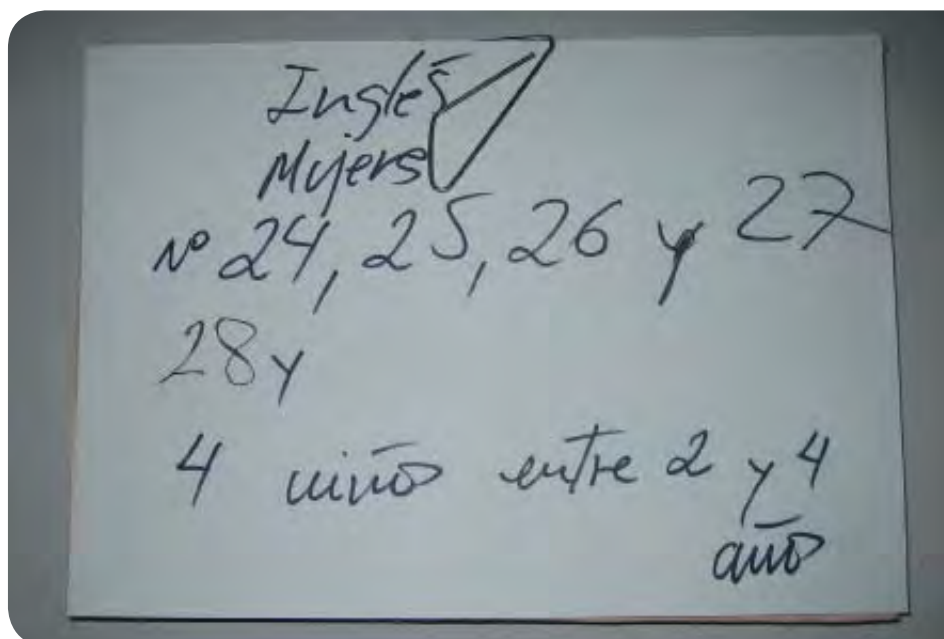 Inglés
Mujers
Nº 24, 25, 26 y 27
28 y
4 niño entre 2 y 4
año